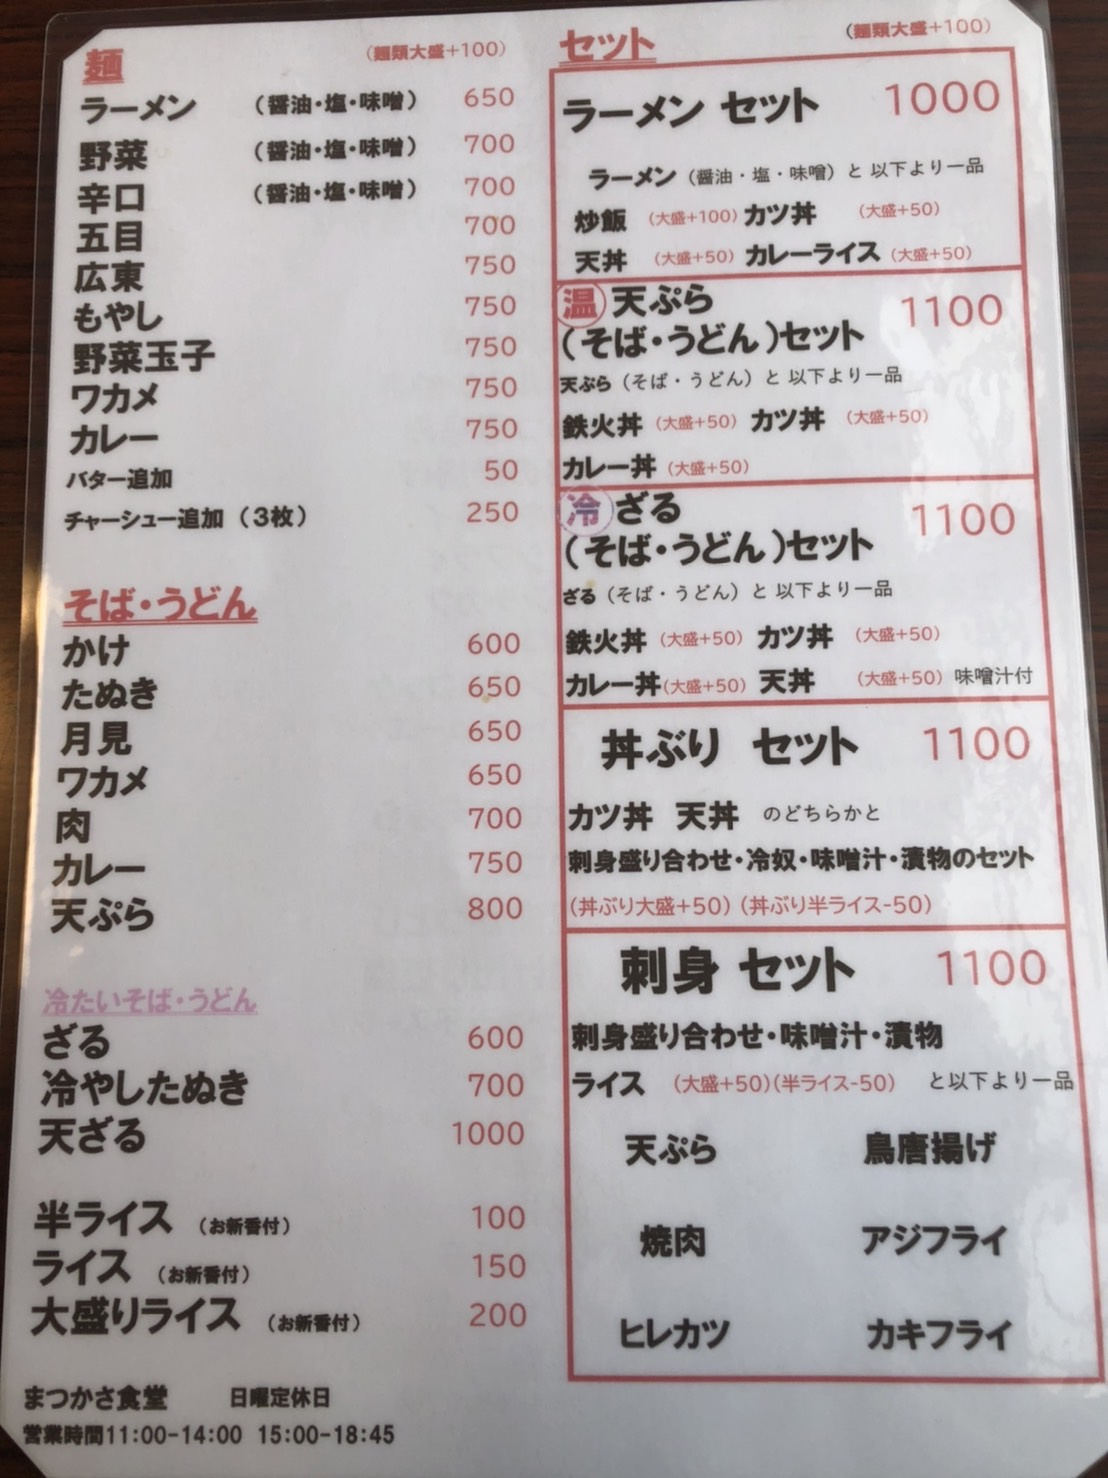 麺 (麺類大盛+100)
ラーメン (醤油・塩・味噌) 650
野菜 (醤油・塩・味噌) 700
辛口 (醤油・塩・味噌) 700
五目 700
広東 750
もやし 750
野菜玉子 750
ワカメ 750
カレー 750
バター追加 50
チャーシュー追加 (3枚) 250
そば・うどん
かけ 600
たぬき 650
月見 650
ワカメ 650
肉 700
カレー 750
天ぷら 800
冷たいそば・うどん
ざる 600
冷やしたぬき 700
天ざる 1000
半ライス (お新香付) 100
ライス (お新香付) 150
大盛りライス (お新香付) 200
まつかさ食堂 日曜定休日
営業時間11:00-14:00 15:00-18:45
セット (麺類大盛+100)
ラーメン セット 1000
ラーメン (醤油・塩・味噌) と 以下より一品
炒飯 (大盛+100) カツ丼 (大盛+50)
天丼 (大盛+50) カレーライス (大盛+50)
温 天ぷら
(そば・うどん)セット 1100
天ぷら (そば・うどん) と 以下より一品
鉄火丼 (大盛+50) カツ丼 (大盛+50)
カレー丼 (大盛+50)
冷 ざる
(そば・うどん)セット 1100
ざる (そば・うどん) と 以下より一品
鉄火丼 (大盛+50) カツ丼 (大盛+50)
カレー丼(大盛+50) 天丼 (大盛+50) 味噌汁付
丼ぶり セット 1100
カツ丼 天丼 のどちらかと
刺身盛り合わせ・冷奴・味噌汁・漬物のセット
(丼ぶり大盛+50) (丼ぶり半ライス-50)
刺身 セット 1100
刺身盛り合わせ・味噌汁・漬物
ライス (大盛+50)(半ライス-50) と以下より一品
天ぷら 鳥唐揚げ
焼肉 アジフライ
ヒレカツ カキフライ